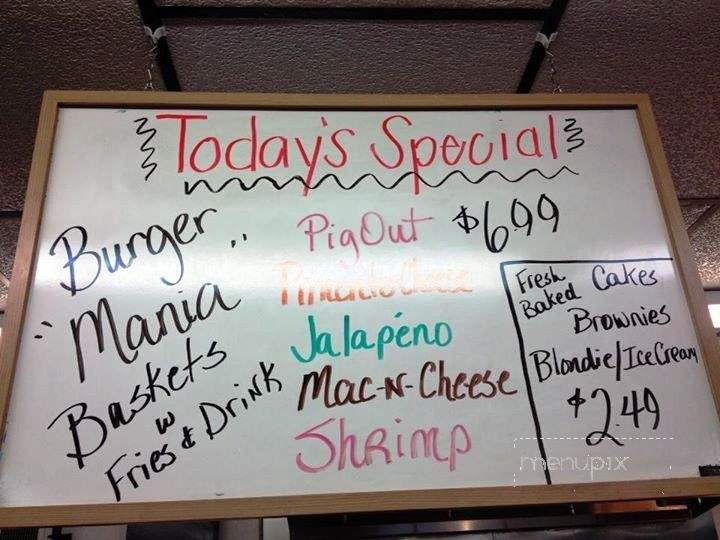 Today's Special
Burger ..
" Mania
Baskets
w
Fries & Drink
PigOut $6.99
Pimento Cheese
Jalapéno
Mac-N-Cheese
Shrimp
Fresh Baked Cakes
Brownies
Blondie/Ice Cream
$2.49
menupix